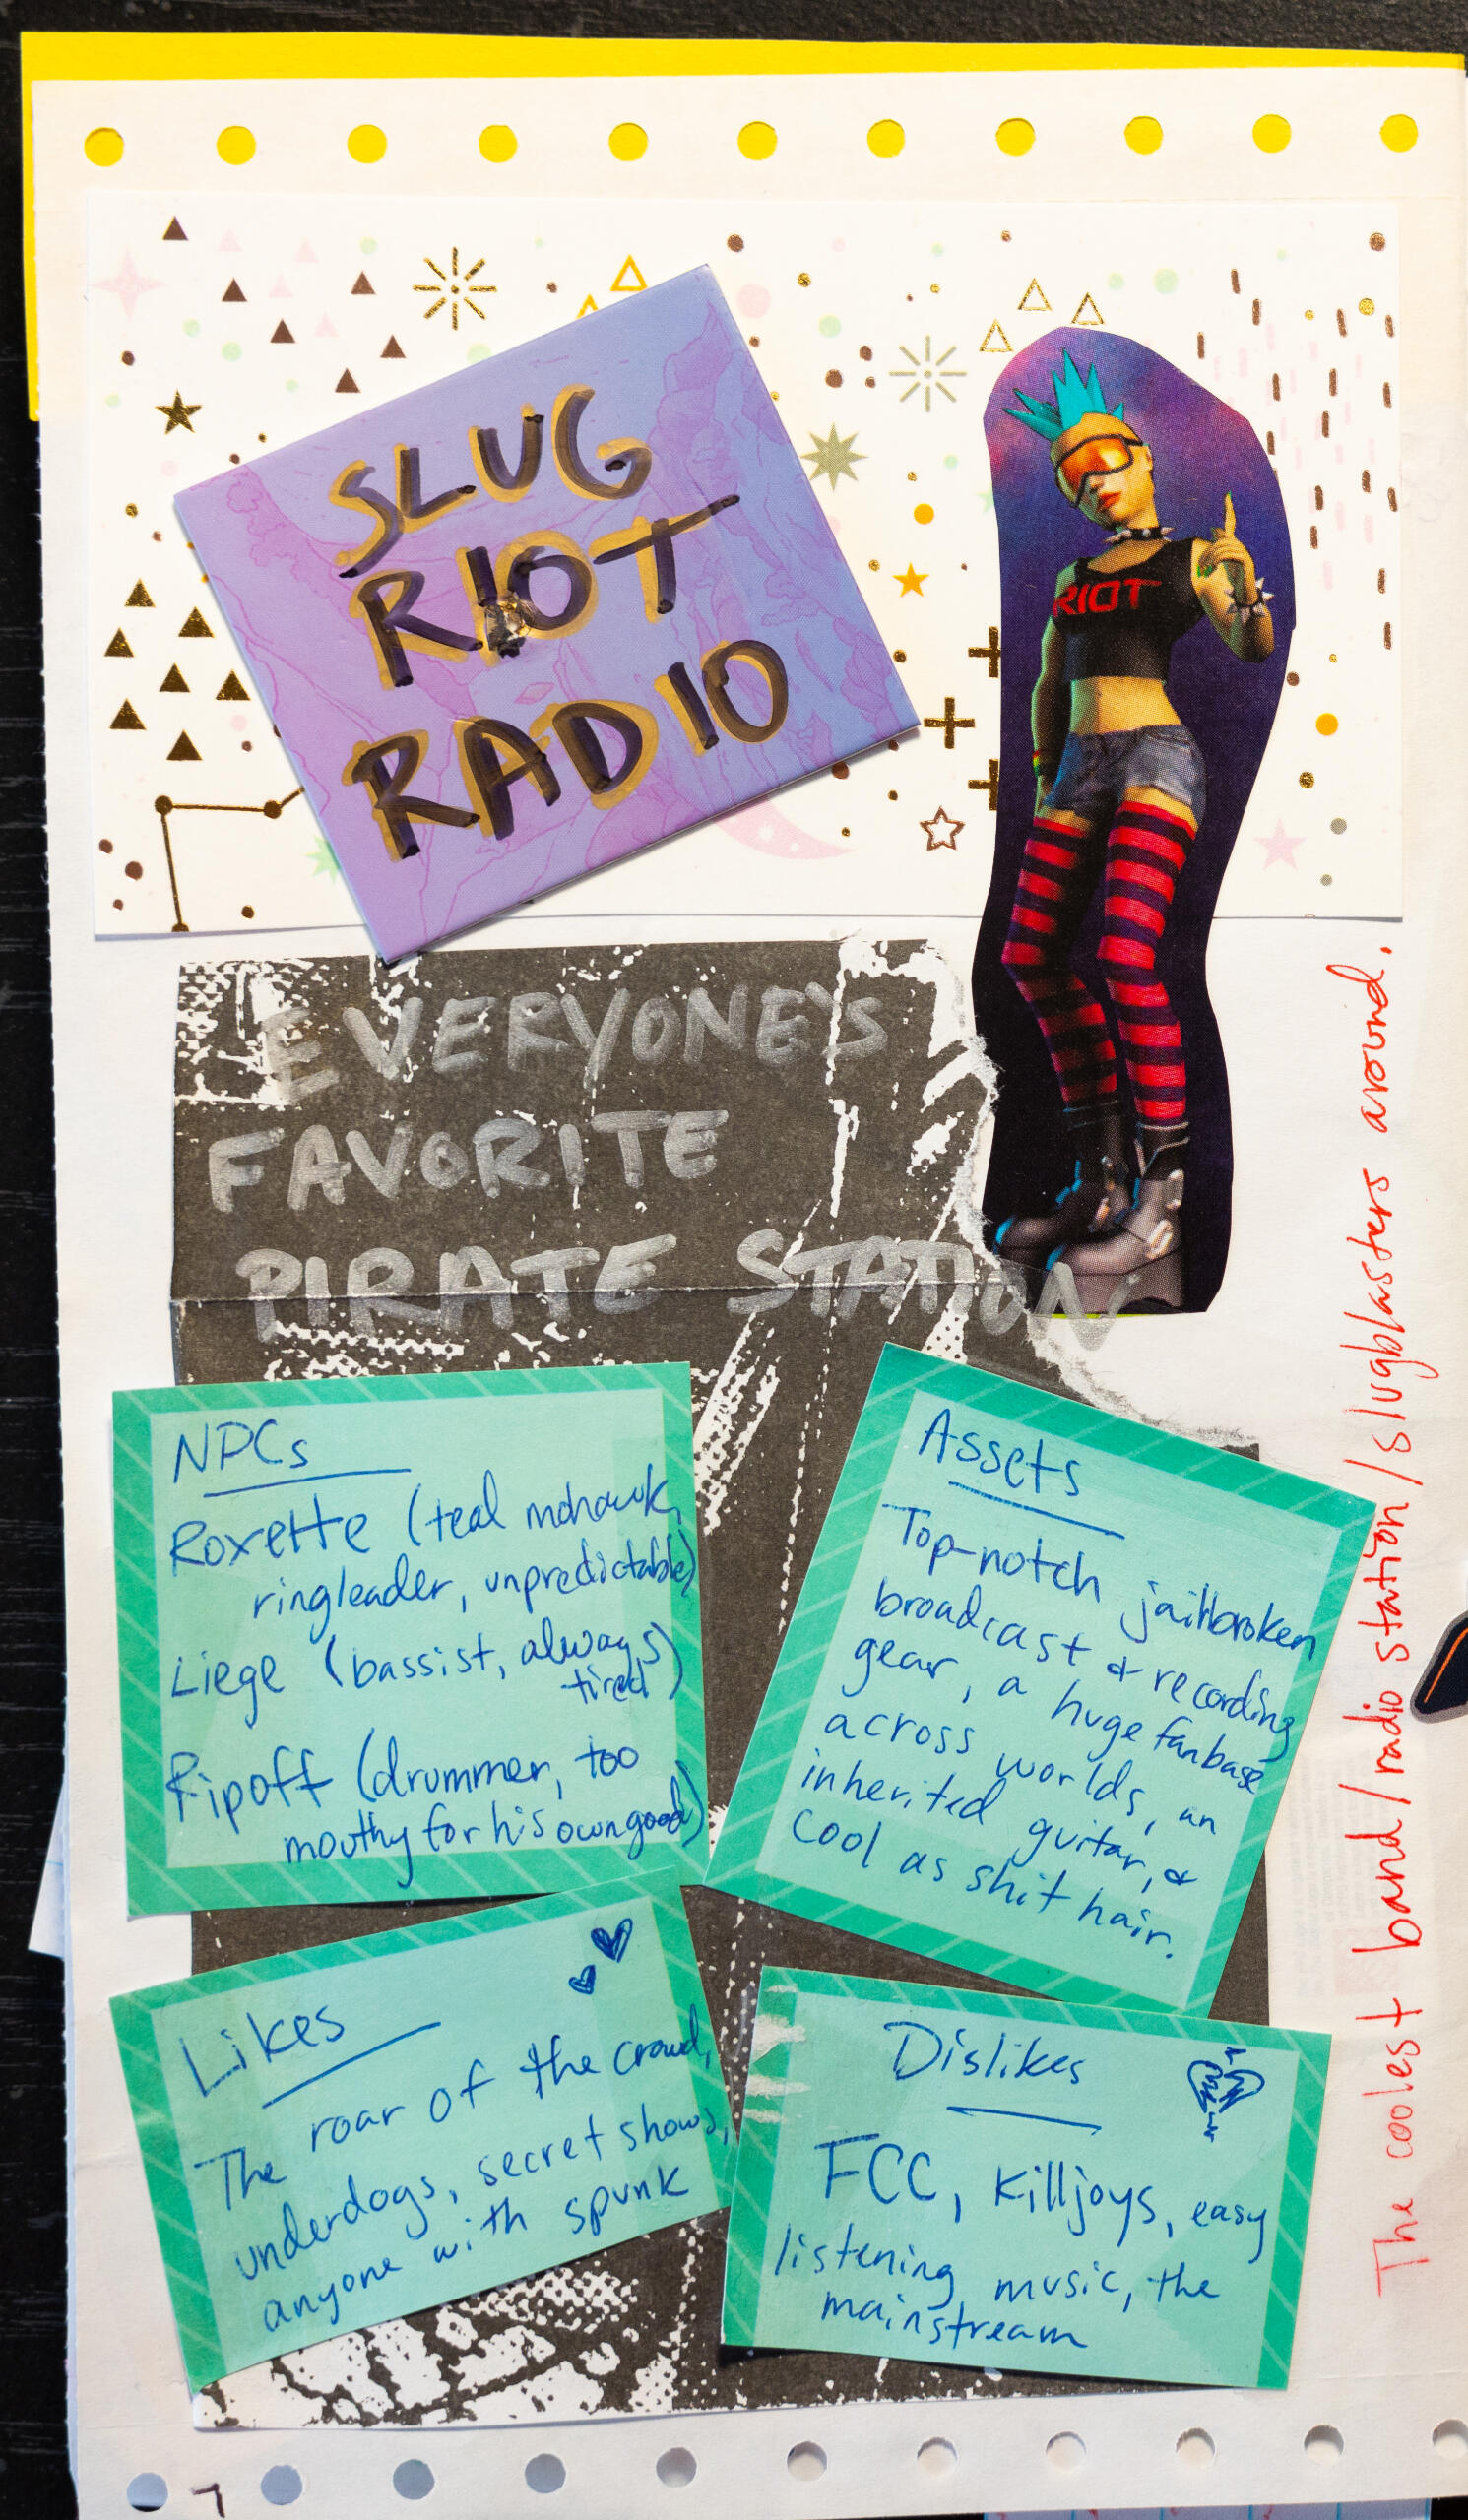 SLUG
RIOT
RADIO
RIOT
EVERYONE'S
FAVORITE
PIRATE STATION
NPCs
Roxette (teal mohawk,
ringleader, unpredictable)
Liege (bassist, always
tired)
Ripoff (drummer, too
mouthy for his own good)
Assets
Top-notch jailbroken
broadcast & recording
gear, a huge fanbase
across worlds, an
inherited guitar, &
cool as shit hair.
Likes
The roar of the crowd,
underdogs, secret shows,
anyone with spunk
Dislikes
FCC, Killjoys, easy
listening music, the
mainstream
The coolest band/radio station/slugblasters around.
7